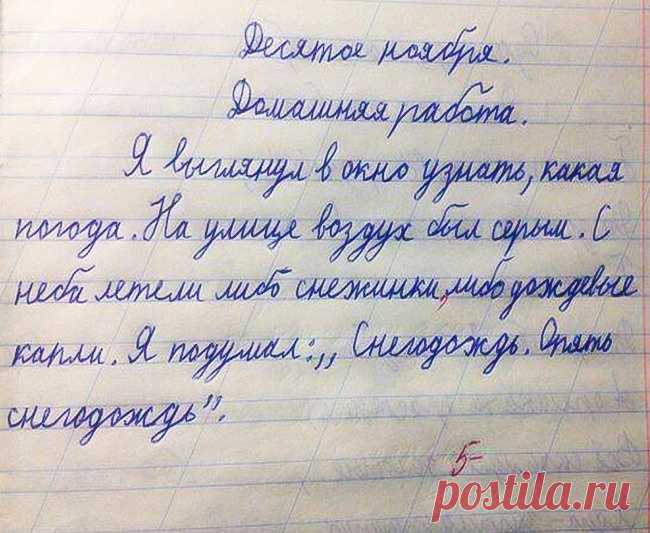 Десятое ноября.
Домашняя работа.
Я выглянул в окно узнать, какая
погода. На улице воздух был серым. С
неба летели либо снежинки, либо дождевые
капли. Я подумал: ,, Снегодождь. Опять
снегодождь".
5-
postila.ru